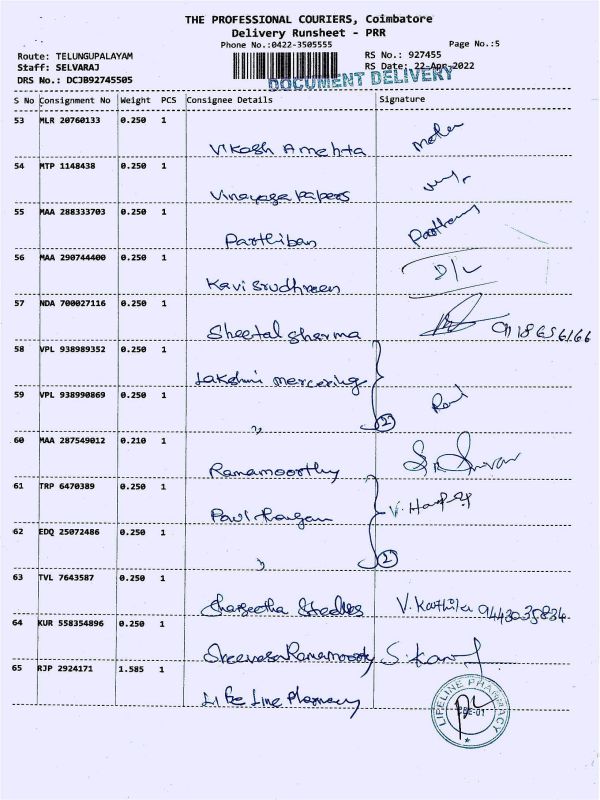 THE PROFESSIONAL COURIERS, Coimbatore
Delivery Runsheet - PRR
Phone No.:0422-3505555
Page No.:5
Route: TELUNGUPALAYAM
RS No.: 927455
Staff: SELVARAJ
RS Date: 22-Apr-2022
DRS No.: DCJB92745505
DOCUMENT DELIVERY
S No Consignment No Weight PCS Consignee Details Signature
53 MLR 20760133 0.250 1
Vikash A mehta
54 MTP 1148438 0.250 1
Vinayaga Papers
55 MAA 288333703 0.250 1
Parthiban
56 MAA 290744400 0.250 1
Kavi D/L
57 NDA 700027116 0.250 1
Sheetal Sharma
58 VPL 938989352 0.250 1
Lakshmi
59 VPL 938990869 0.250 1
" 2
60 MAA 287549012 0.210 1
Ramamoorthy
61 TRP 6470389 0.250 1
62 EDQ 25072486 0.250 1
" 2
63 TVL 7643587 0.250 1
64 KUR 558354896 0.250 1
65 RJP 2924171 1.585 1
Life Line Pharmacy
LIFELINE PHARMACY
CBE-01